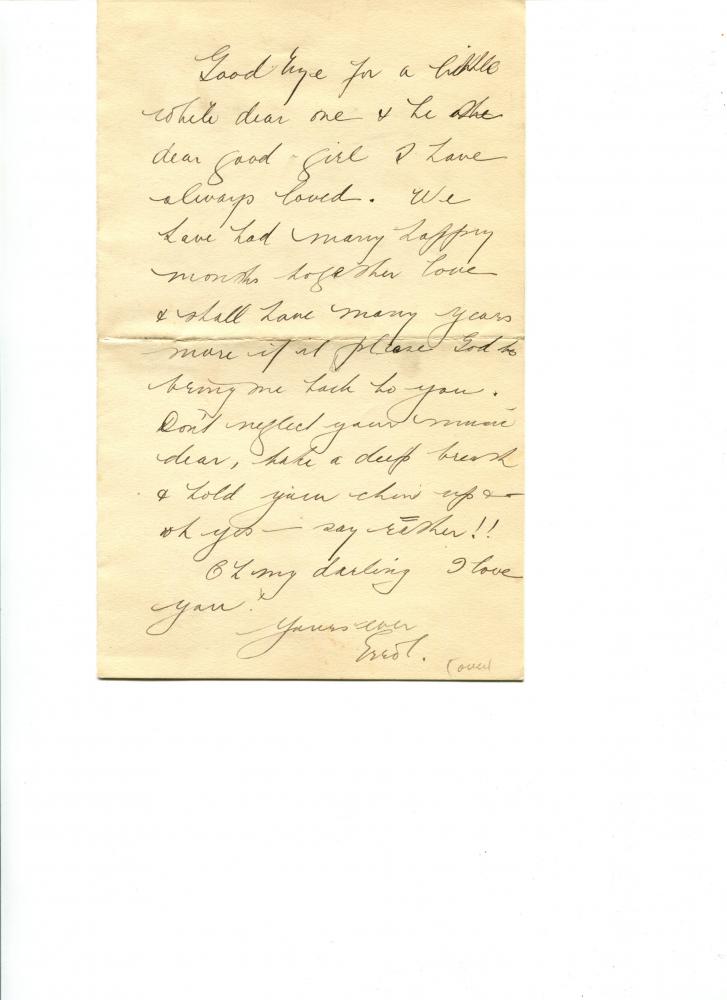 Good bye for a little
while dear one & be the
dear good girl I have
always loved. We
have had many happy
months together love
& shall have many years
more if it please God to
bring me back to you.
Don't neglect your music
dear, take a deep breath
& hold your chin up &
oh yes — say Esther!!
Oh my darling I love
you!
Yours ever
Errol.
(over)